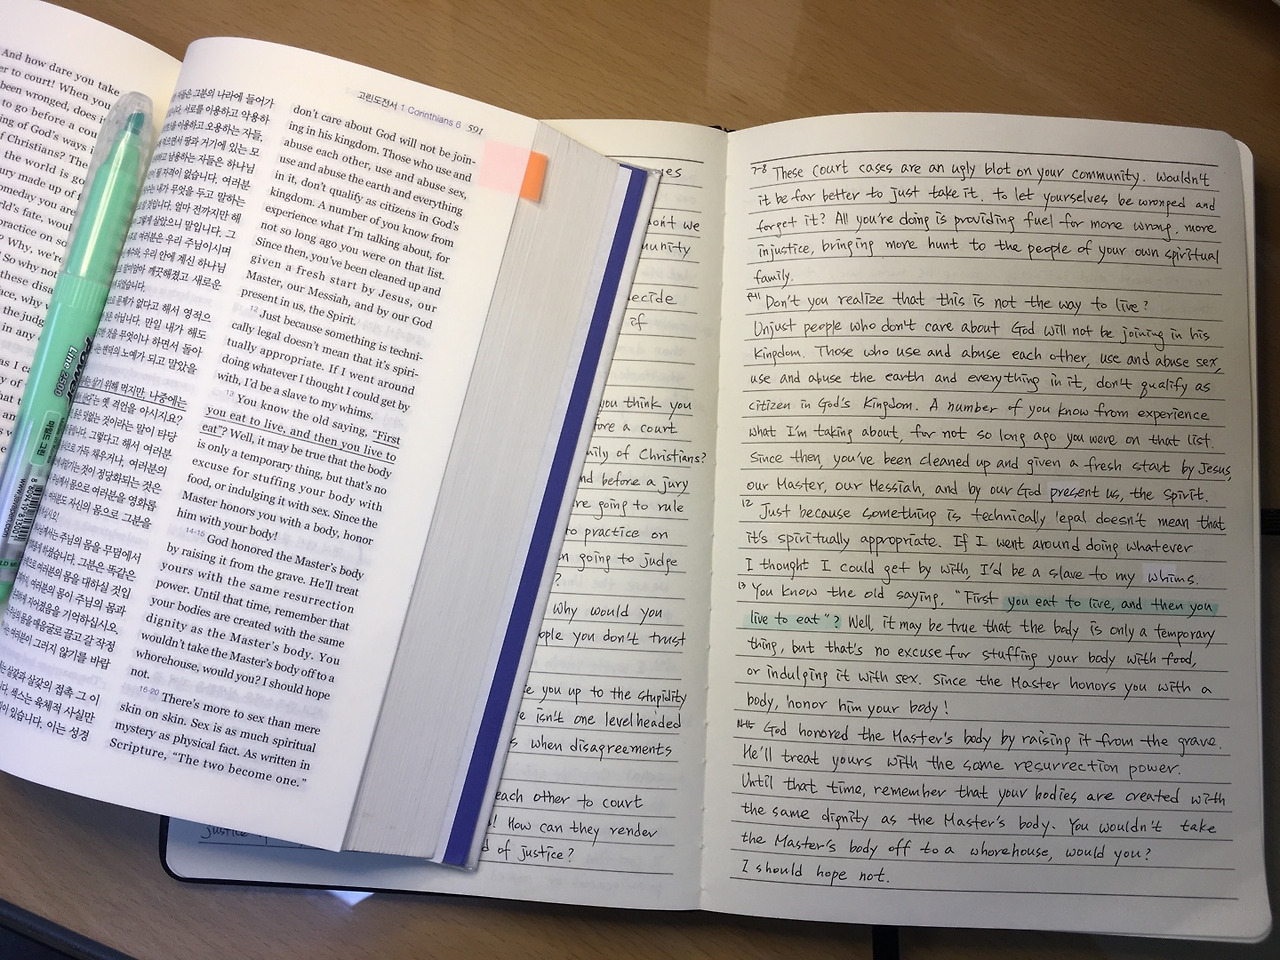 And how dare you take
er to court! When you
been wronged, does i
to go before a cou
ing of God's ways i
f Christians? The
the world is go
ury made up of
omeday you are
rld's fate, would
practice on so
? Why, we're
! So why not
these disa
ace, why
the judg
in any
Power
Line 2500
마일드 그린
고린도전서 1 Corinthians 6 591
은 그분의 나라에 들어가
서로를 이용하고 악용하
을 이용하고 오용하는 자들,
땅과 거기에 있는 모
남용하는 자들은 하나님
자격이 없습니다. 여러분
내가 무엇을 두고 말하는
것입니다. 얼마 전까지만 해
그렇게 살았으니 말입니다. 그
여러분은 우리 주님이시며
우리 안에 계신 하나님
깨끗해졌고 새로운
문제가 없다고 해서 영적으
아닙니다. 만일 내가 해도
무엇이나 하면서 돌아
변덕의 노예가 되고 말았을
살기 위해 먹지만, 나중에는
옛 격언을 아시지요?
것이라는 말이 타당
그렇다고 해서 여러분
가득 채우거나, 여러분의
것이 정당화되는 것은
몸으로 여러분을 영화롭
자신의 몸으로 그분을
주님의 몸을 무덤에서
그분은 똑같은
몸을 대하실 것입
몸이 주님의 몸과
지어졌음을 기억하십시오.
몸을 매음굴로 끌고 갈 작정
여러분이 그러지 않기를 바랍
살갗과 살갗의 접촉 그 이
섹스는 육체적 사실만
이는 성경
don't care about God will not be join-
ing in his kingdom. Those who use and
abuse each other, use and abuse sex,
use and abuse the earth and everything
in it, don't qualify as citizens in God's
kingdom. A number of you know from
experience what I'm talking about, for
not so long ago you were on that list.
Since then, you've been cleaned up and
given a fresh start by Jesus, our
Master, our Messiah, and by our God
present in us, the Spirit.
12 Just because something is techni-
cally legal doesn't mean that it's spiri-
tually appropriate. If I went around
doing whatever I thought I could get by
with, I'd be a slave to my whims.
13 You know the old saying, "First
you eat to live, and then you live to
eat"? Well, it may be true that the body
is only a temporary thing, but that's no
excuse for stuffing your body with
food, or indulging it with sex. Since the
Master honors you with a body, honor
him with your body!
14-15 God honored the Master's body
by raising it from the grave. He'll treat
yours with the same resurrection
power. Until that time, remember that
your bodies are created with the same
dignity as the Master's body. You
wouldn't take the Master's body off to a
whorehouse, would you? I should hope
not.
16-20 There's more to sex than mere
skin on skin. Sex is as much spiritual
mystery as physical fact. As written in
Scripture, "The two become one."
won't we
munity
decide
if
you think you
fore a court
mily of Christians?
nd before a jury
re going to rule
to practice on
n going to judge
?
Why would you
ople you don't trust
e you up to the stupidity
e isn't one levelheaded
s when disagreements
each other to court
! How can they render
justice
d of justice?
7-8 These court cases are an ugly blot on your community. Wouldn't
it be far better to just take it. to let yourselves be wronged and
forget it? All you're doing is providing fuel for more wrong, more
injustice, bringing more hunt to the people of your own spiritual
family.
9-11 Don't you realize that this is not the way to live?
Unjust people who don't care about God will not be joining in his
Kingdom. Those who use and abuse each other, use and abuse sex,
use and abuse the earth and everything in it, don't qualify as
citizen in God's Kingdom. A number of you know from experience
what I'm taking about, for not so long ago you were on that list.
Since then, you've been cleaned up and given a fresh start by Jesus,
our Master, our Messiah, and by our God present us, the Spirit.
12 Just because something is technically legal doesn't mean that
it's spiritually appropriate. If I went around doing whatever
I thought I could get by with, I'd be a slave to my whims.
13 You know the old saying, "First you eat to live, and then you
live to eat"? Well, it may be true that the body is only a temporary
thing, but that's no excuse for stuffing your body with food,
or indulging it with sex. Since the Master honors you with a
body, honor him your body!
14-15 God honored the Master's body by raising it from the grave.
He'll treat yours with the same resurrection power.
Until that time, remember that your bodies are created with
the same dignity as the Master's body. You wouldn't take
the Master's body off to a whorehouse, would you?
I should hope not.